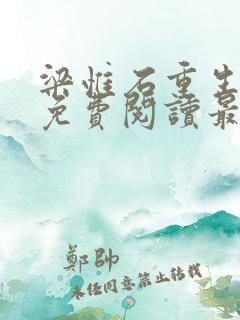 梁惟石重生
免費閱讀最
鄭帥
未經同意禁止轉載